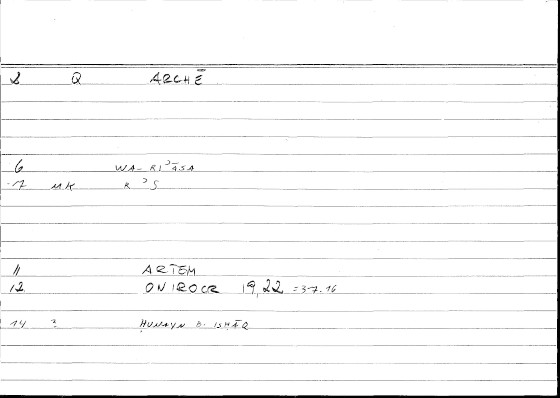 8 Q ARCHĒ
6 WA-RIʾĀSA
7 MK R ʾ S
11 ARTEM
12 ONIROCR 19,22 =37.16
14 ? ḤUNAYN B. ISḤĀQ